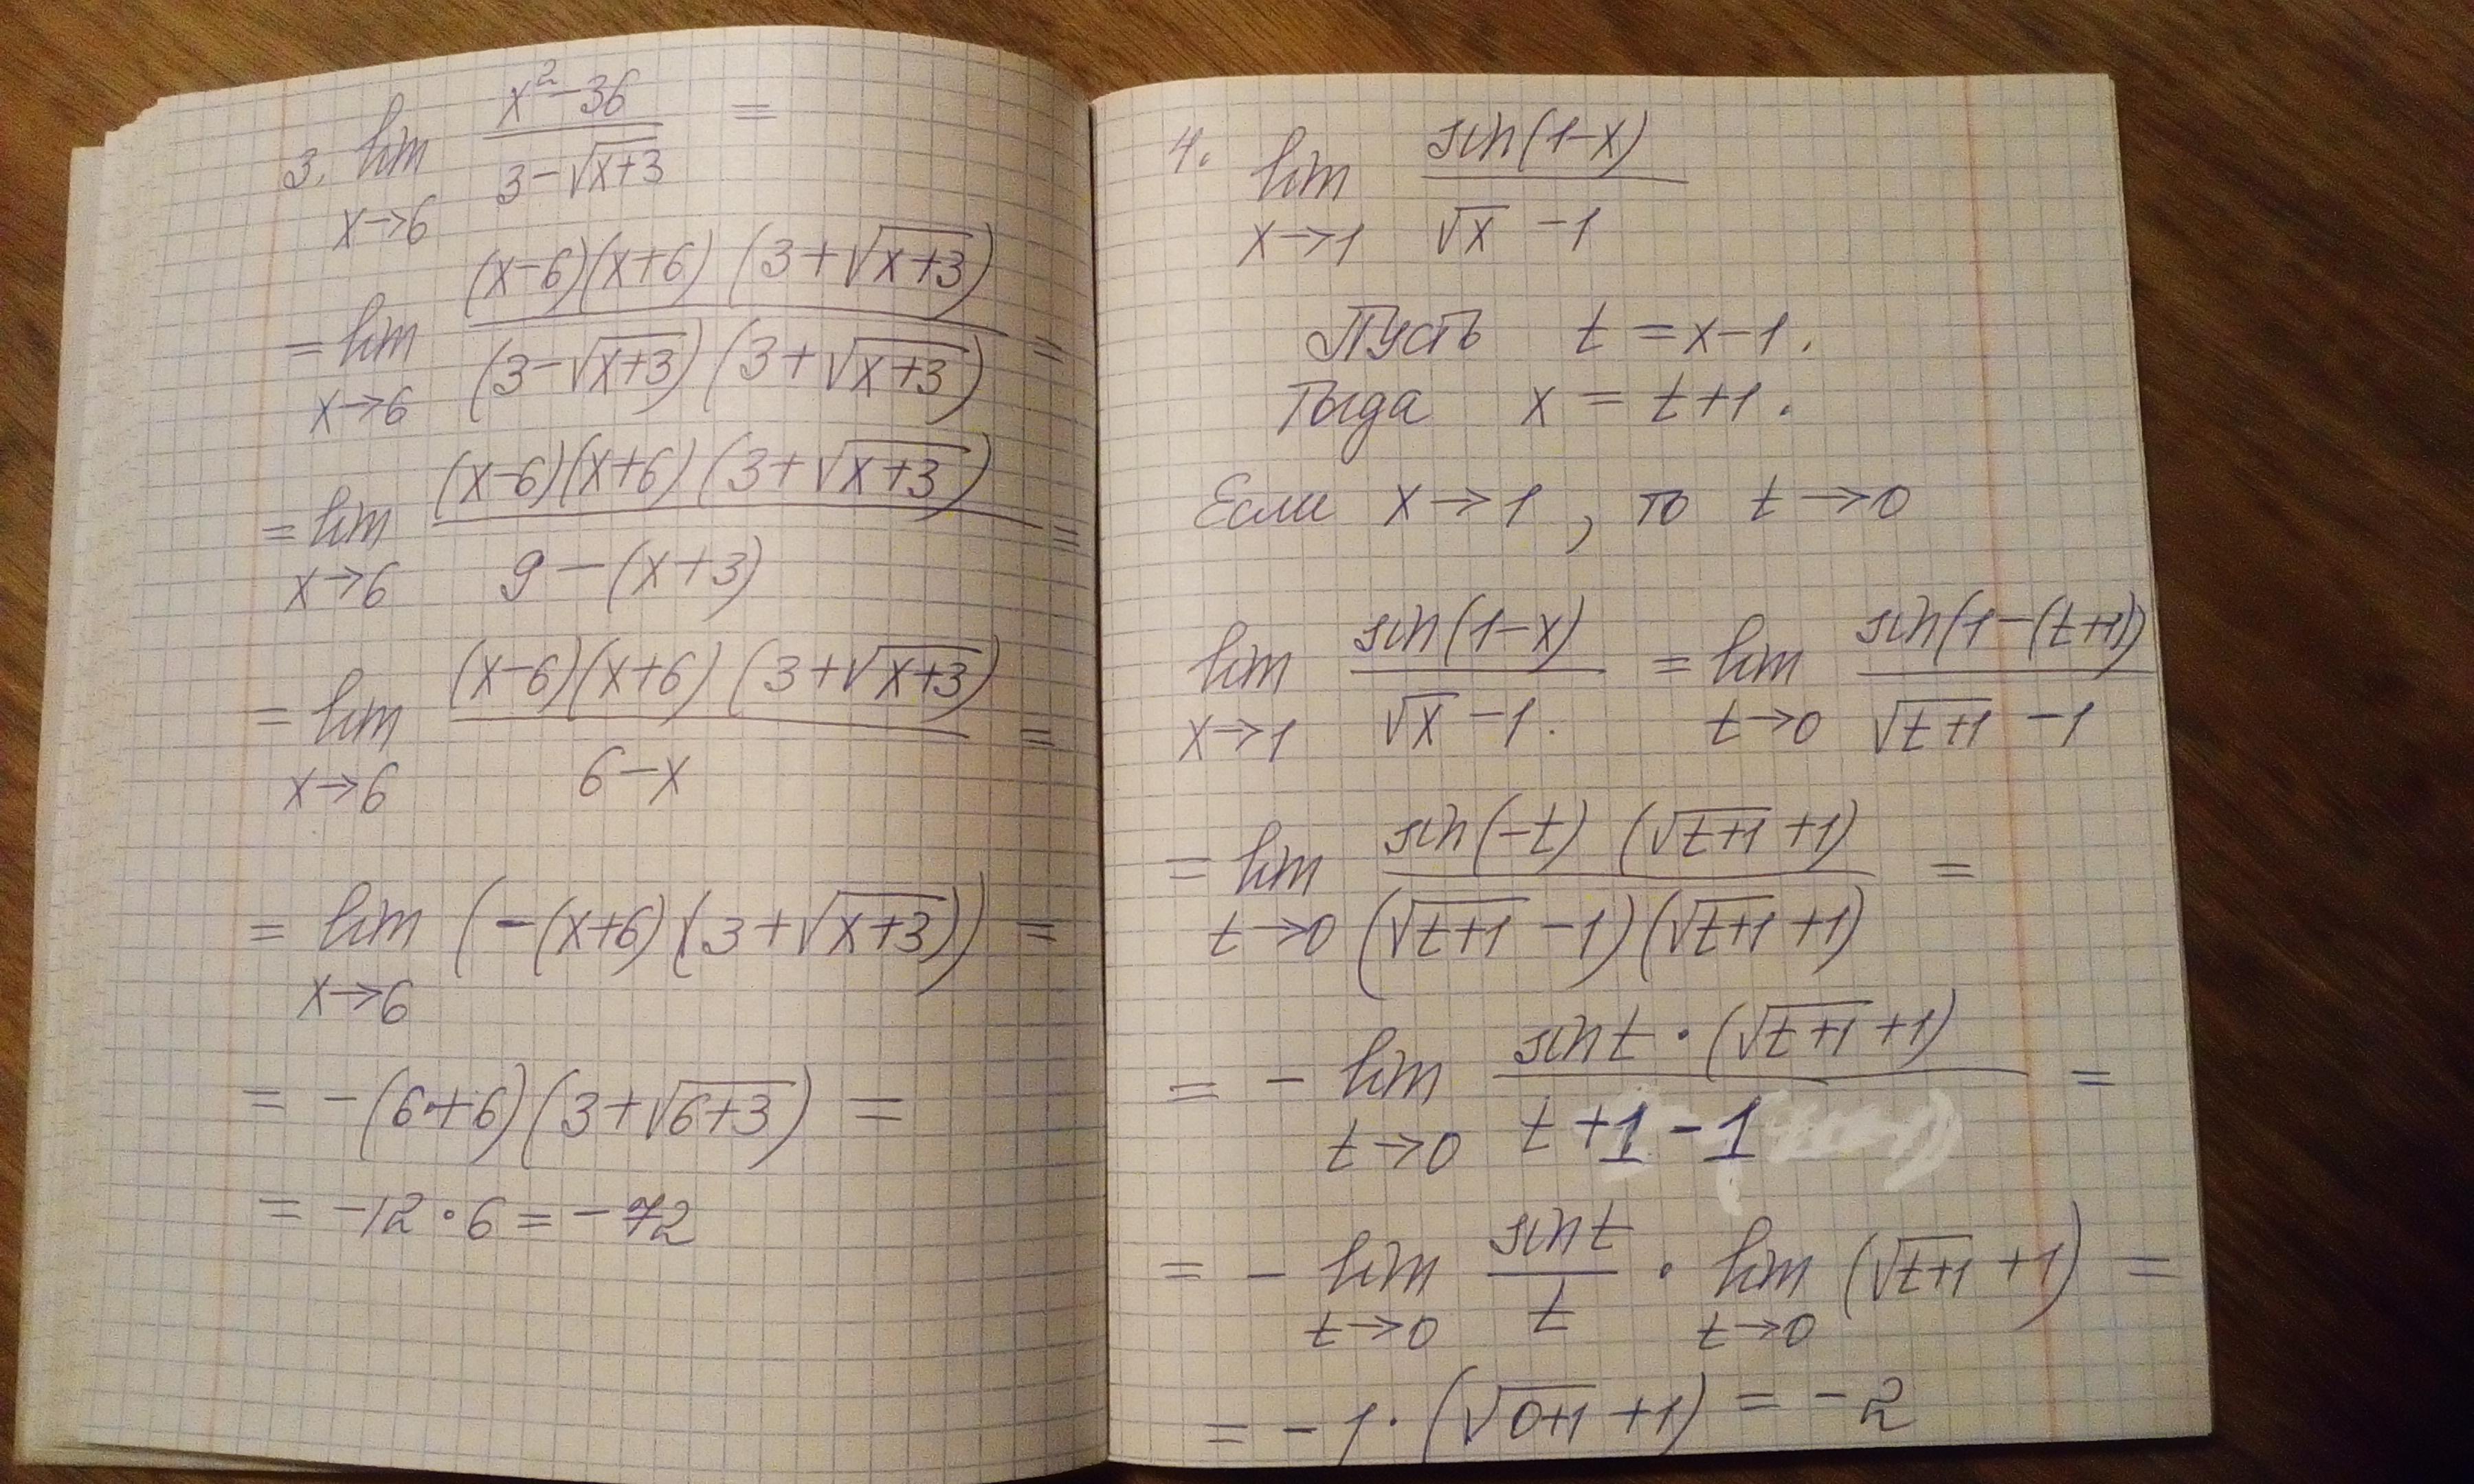 3. lim x→6 (x² − 36)/(3 − √(x+3)) =
= lim x→6 ((x−6)(x+6)(3+√(x+3)))/((3−√(x+3))(3+√(x+3))) =
= lim x→6 ((x−6)(x+6)(3+√(x+3)))/(9 − (x+3)) =
= lim x→6 ((x−6)(x+6)(3+√(x+3)))/(6−x) =
= lim x→6 (−(x+6)(3+√(x+3))) =
= −(6+6)(3+√(6+3)) =
= −12·6 = −72
4. lim x→1 sin(1−x)/(√x −1)
Пусть t = x−1.
Тогда x = t+1.
Если x→1, то t→0
lim x→1 sin(1−x)/(√x −1) = lim t→0 sin(1−(t+1))/(√(t+1) −1)
= lim t→0 (sin(−t) (√(t+1) +1))/((√(t+1) −1)(√(t+1) +1)) =
= − lim t→0 (sin t · (√(t+1) +1))/(t+1−1) =
= − lim t→0 (sin t)/t · lim t→0 (√(t+1) +1) =
= −1·(√(0+1) +1) = −2